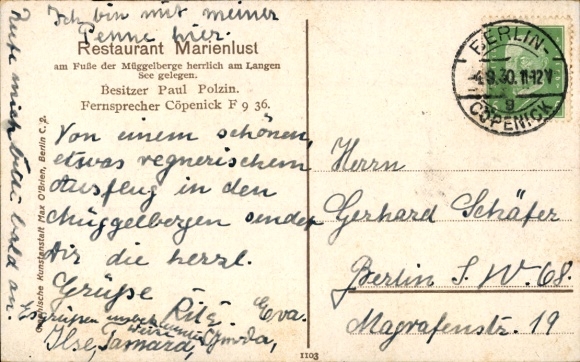 Ich bin mit meiner
Penne hier.
Restaurant Marienlust
am Fuße der Müggelberge herrlich am Langen
See gelegen.
Besitzer Paul Polzin.
Fernsprecher Cöpenick F 9 36.
Von einem schönen,
etwas regnerischem
Ausflug in den
Müggelbergen sendet
Dir die herzl.
Grüße Rita, Eva.
Es grüßen unbekannter
weise
Ilse, Tamara, Gerda,
Rufe mich bitte bald an.
Kunstanstalt Max O'Brien, Berlin C. 2.
1103
BERLIN-
4.9.30. 11-12V
g
CÖPENICK
Herrn
Gerhard Schäfer
Berlin S.W. 68.
Magrafenstr. 19